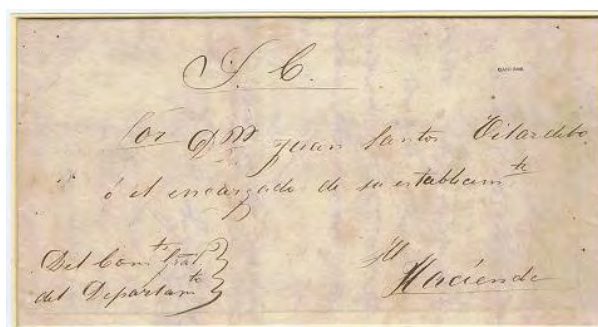 S. C.
Por Dn Juan Santos Vilardebo
ó el encargado de su establecimto
Del Comte Gral.
del Departamto
Su
Hacienda